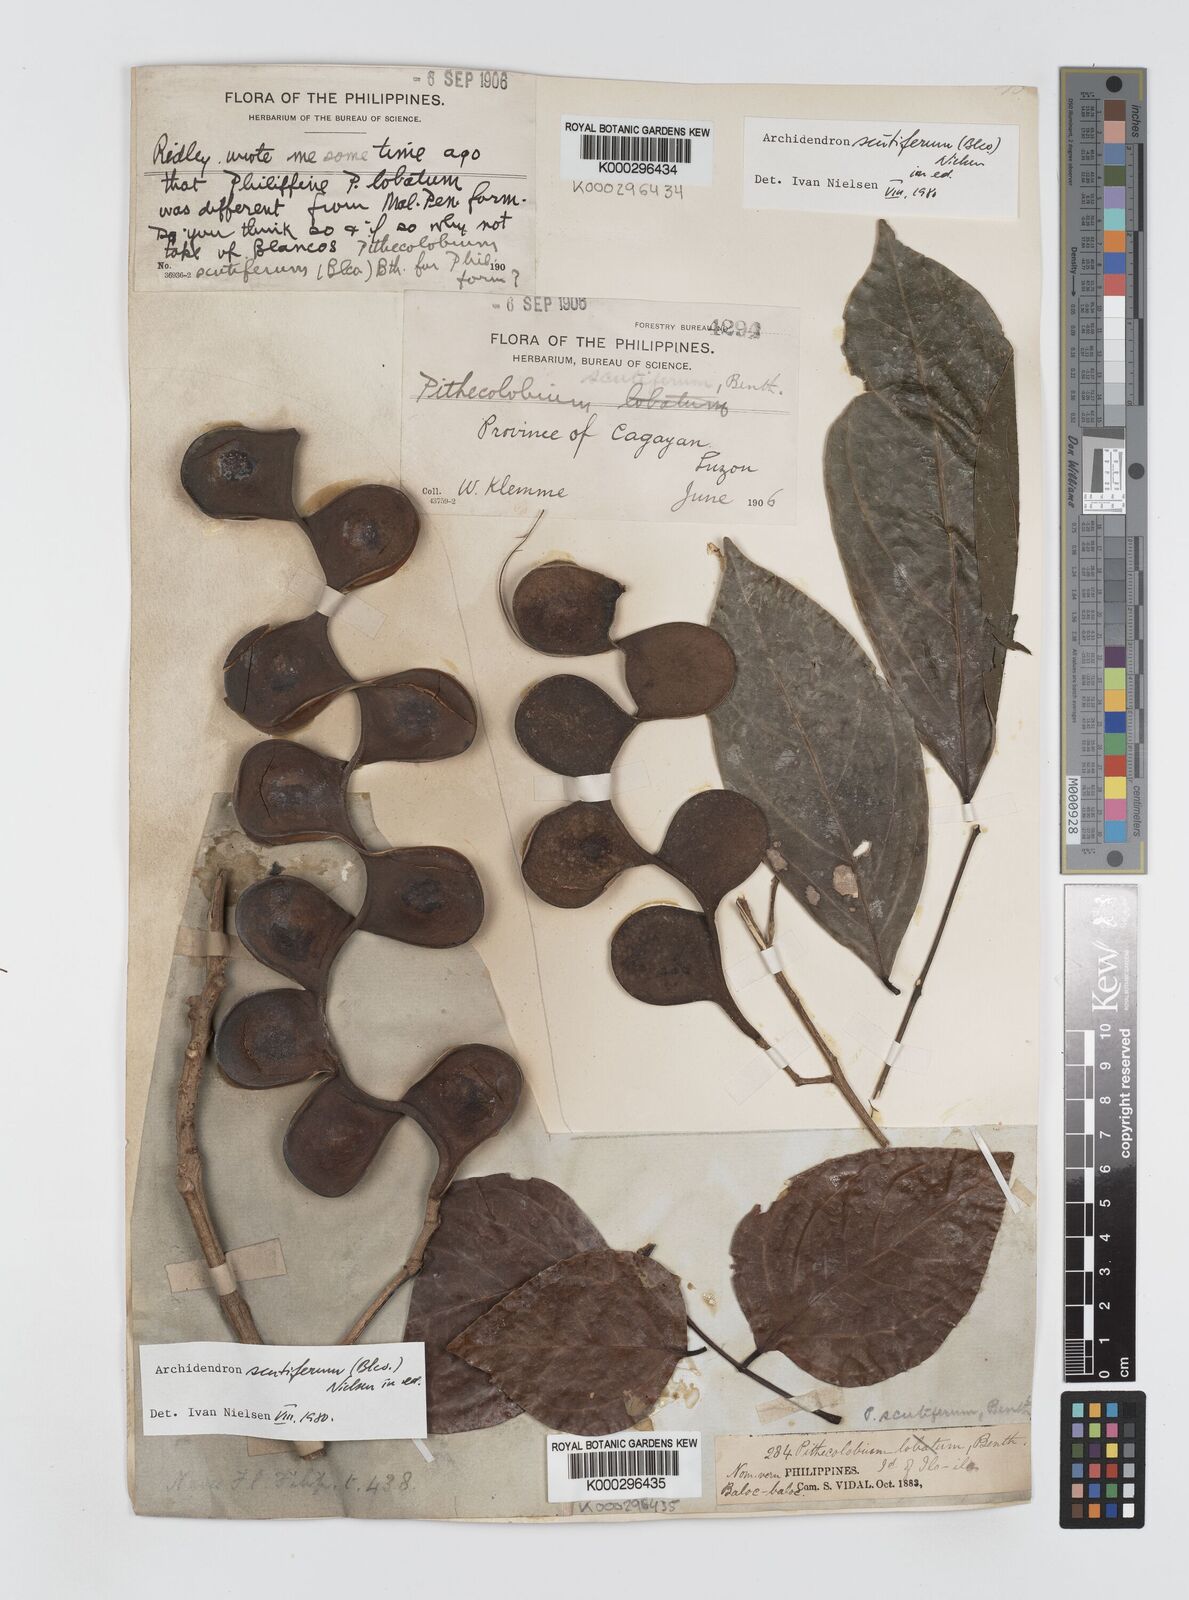 - 6 SEP 1906
FLORA OF THE PHILIPPINES.
HERBARIUM OF THE BUREAU OF SCIENCE.
Ridley wrote me some time ago
that Philippine P. lobatum
was different from Mal. Pen. form.
Do you think so & if so why not
take up Blancos Pithecolobium
scutiferum (Blco) Bth. for Phil.
form?
No.
36936-2
190
ROYAL BOTANIC GARDENS KEW
K000296434
K000296434
Archidendron scutiferum (Blco)
Nielsen
in ed.
Det. Ivan Nielsen VIII. 1980
- 6 SEP 1906
FORESTRY BUREAU No. 4294
FLORA OF THE PHILIPPINES.
HERBARIUM, BUREAU OF SCIENCE.
scutiferum, Benth.
Pithecolobium lobatum
Province of Cagayan
Luzon
Coll. W. Klemme
43759-2
June 1906
Archidendron scutiferum (Blco.)
Nielsen in ed.
Det. Ivan Nielsen VIII. 1980.
t. 438.
ROYAL BOTANIC GARDENS KEW
K000296435
K000296435
P. scutiferum, Benth
284 Pithecolobium lobatum, Benth.
Nom. vern PHILIPPINES.
Baloc-baloc. Com. S. VIDAL. Oct. 1883,
inches
centimeters
Density
Don Williams
M000928
Kew
ROYAL BOTANIC GARDENS
copyright reserved
0 1 2 3 4 5 6 7 8 9 10
cm